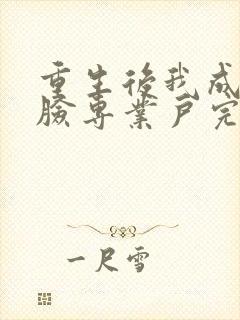 重生後我成
臉專業戶完
一尺雪